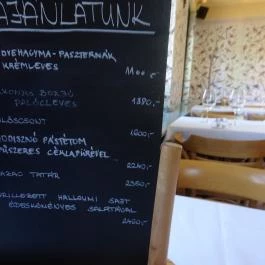 AJÁNLATUNK
DVEHAGYMA-PASZTERNÁK
KRÉMLEVES 1100
BORJÚ
PALÓCLEVES 1380,-
LŐSCSONT 1600,-
DDISZNÓ PÁSTÉTOM
FŰSZERES CÉKLAPÜRÉVEL 2240,-
AZAC TATÁR 2350,-
GRILLEZETT HALLOUMI SAJT
ÉDESKÖMÉNYES SALÁTÁVAL
2450,-